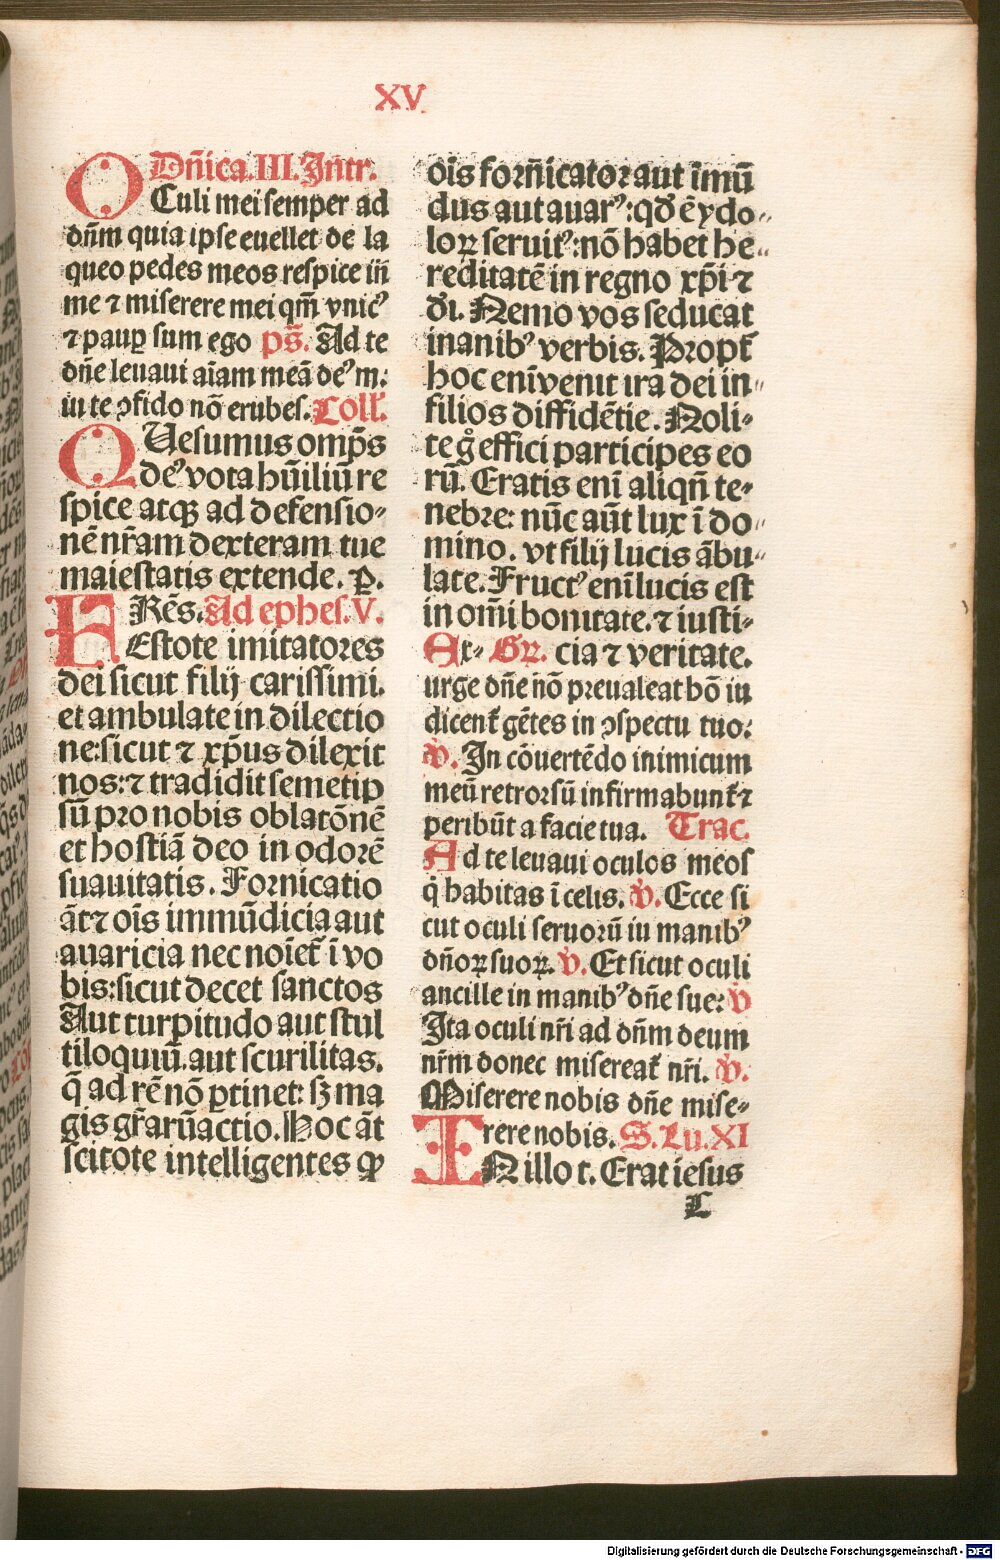 XV
Dn̄ica.III.Intr.
OCuli mei semper ad
dn̄m quia ipse euellet de la
queo pedes meos respice in̄
me ⁊ miserere mei qm̄ vnicꝰ
⁊ paup̲ sum ego ps̄. Ad te
dn̄e leuaui aīam meā deꝰ m:
in te ꝯfido nō erubes. Coll'.
QUesumus omp̄s
deꝰ vota hūiliū re
spice atqꝫ ad defensio⸗
nē nr̄am dexteram tue
maiestatis extende. P.
FRēs. Ad ephes. V.
Estote imitatores
dei sicut filij carissimi.
et ambulate in dilectio
ne: sicut ⁊ xp̄us dilexit
nos: ⁊ tradidit semetip
sū pro nobis oblatōnē
et hostiā deo in odorē
suauitatis. Fornicatio
āt ⁊ oīs immūdicia aut
auaricia nec noīet̄ ī vo
bis: sicut decet sanctos
Aut turpitudo aut stul
tiloquiū. aut scurilitas.
q̄ ad rē nō ꝑtinet: sꝫ ma
gis gr̄arū actio. Hoc āt
scitote intelligentes ꝙ
oīs forn̄icator aut īmū
dus aut auarꝰ: qd̄ ē ydo⸗
loꝝ seruitꝰ: nō habet he⸗
reditatē in regno xp̄i ⁊
dī. Nemo vos seducat
inanibꝰ verbis. Propt̄
hoc enī venit ira dei in⸗
filios diffidētie. Noli⸗
te gͦ effici participes eo
rū. Eratis enī aliqn̄ te⸗
nebre: nūc aūt lux ī do⸗
mino. vt filij lucis ābu⸗
late. Fructꝰ enī lucis est
in om̄i bonitate. ⁊ iusti⸗
Ex⸗ Gꝝ. cia ⁊ veritate.
urge dn̄e nō preualeat hō in
dicent̄ gētes in ꝯspectu tuo:
V̕. In cōuertēdo inimicum
meū retrorsū infirmabunt̄ ⁊
peribūt a facie tua. Trac.
Ad te leuaui oculos meos
q̇ habitas ī celis. V̕. Ecce si
cut oculi seruorū in manibꝰ
dn̄oꝝ suoꝝ. V̕. Et sicut oculi
ancille in manibꝰ dn̄e sue: V̕
Ita oculi nr̄i ad dn̄m deum
nr̄m donec misereat̄ nr̄i. V̕.
Miserere nobis dn̄e mise⸗
rere nobis. S. Lu. XI
IN illo t. Erat iesus
L
Digitalisierung gefördert durch die Deutsche Forschungsgemeinschaft - DFG